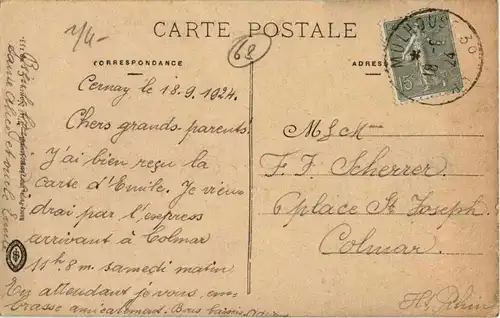 CARTE POSTALE
1/4-
68
CORRESPONDANCE
ADRES
MULHOUSE
15
Cernay le 18.9.1924.
Chers grands-parents!
J'ai bien reçu la
carte d'Emile. Je vien-
drai par l'express
arrivant à Colmar
11h 8m samedi matin
En attendant je vous em-
brasse amicalement. Bons baisers
M & Mme
F. F. Scherrer
6 place St Joseph
Colmar.
Ht Rhin